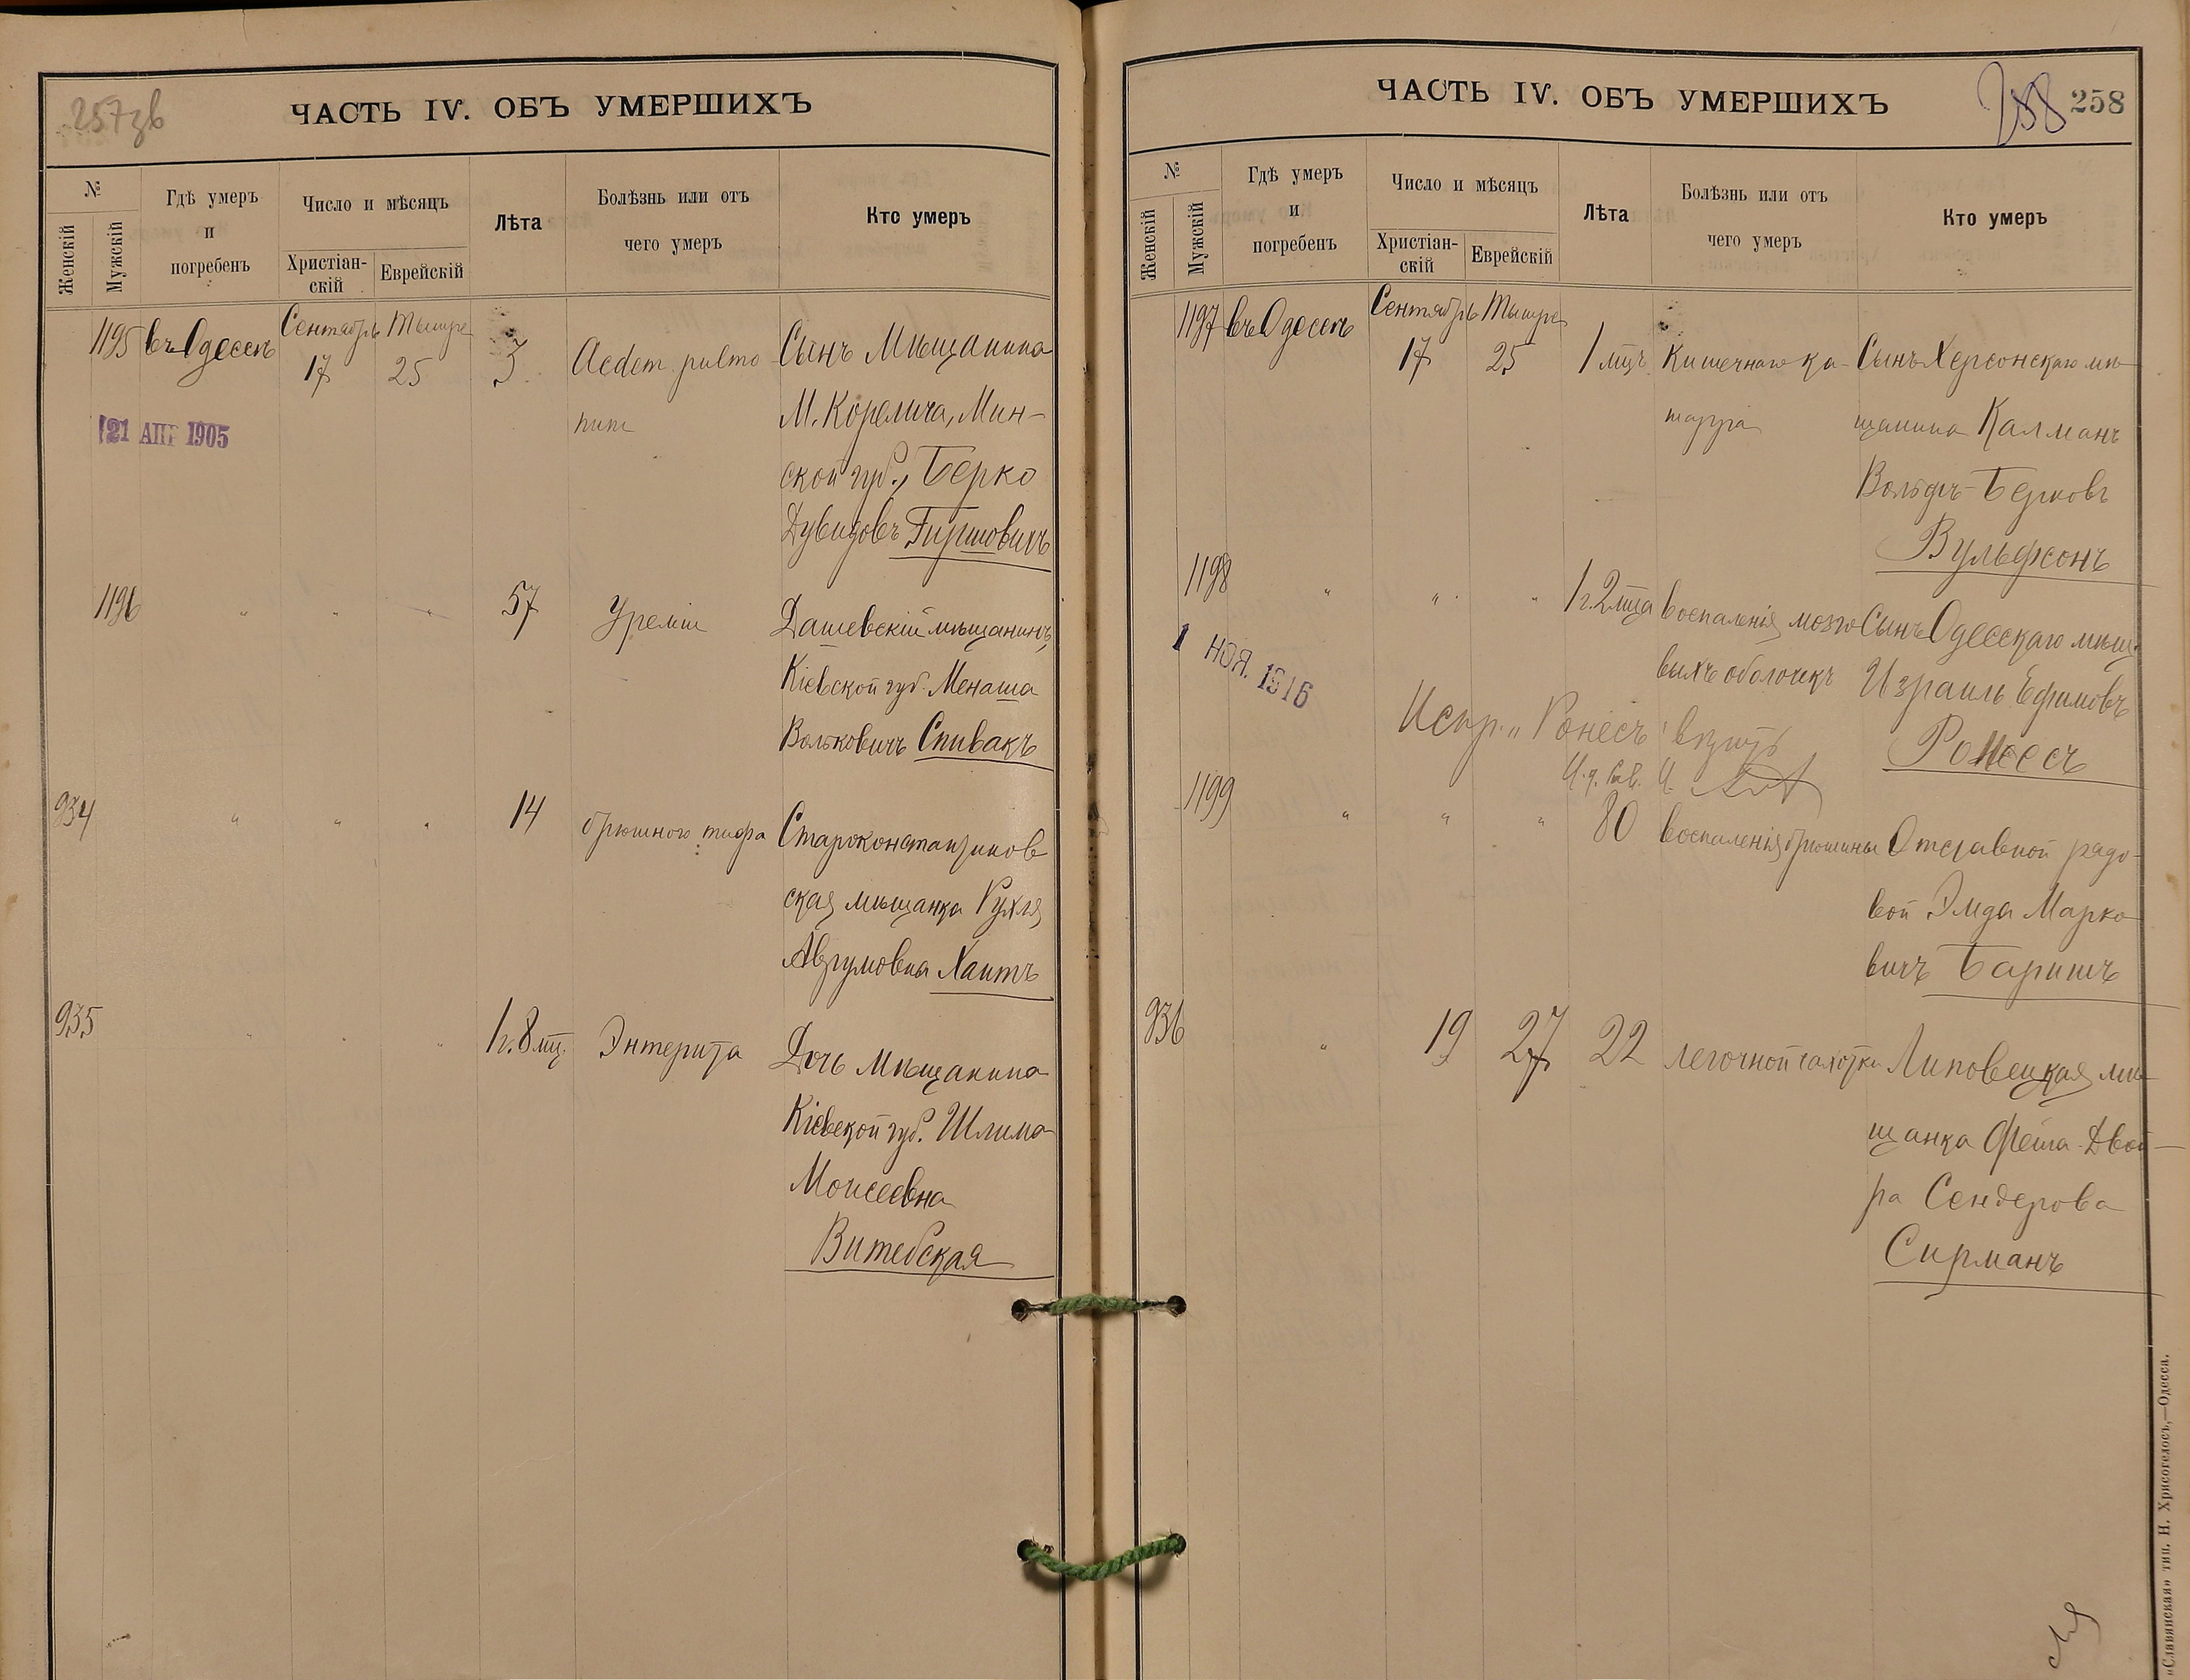 257зв
ЧАСТЬ IV. ОБЪ УМЕРШИХЪ
№
Женскій
Мужскій
Гдѣ умеръ
и
погребенъ
Число и мѣсяцъ
Христіан-
скій
Еврейскій
Лѣта
Болѣзнь или отъ
чего умеръ
Кто умеръ
1195 въ Одессѣ Сентябрь Тышре
17 25 3 Aedem pulmo Сынъ Мѣщанина
М. Корелича, Мин-
21 АПР 1905
ской губ., Берко
Дувидовъ Гиршовичъ
1196 " " " 57 Уреміи Дашевскій мѣщанинъ,
Кіевской губ. Менаша
Вольковичъ Спивакъ
934 " " " 14 брюшного тифа Староконстантинов
ская мѣщанка Рухля
Аврумовна Хаитъ
935 " " " 1 г. 8 мц. Энтерита Дочь Мѣщанина
Кіевской губ. Шлима
Моисеевна
Витебская
ЧАСТЬ IV. ОБЪ УМЕРШИХЪ
258 258
№
Женскій
Мужскій
Гдѣ умеръ
и
погребенъ
Число и мѣсяцъ
Христіан-
скій
Еврейскій
Лѣта
Болѣзнь или отъ
чего умеръ
Кто умеръ
1197 въ Одессѣ Сентябрь Тышре
17 25 1 мцъ Кишечнаго ка- Сынъ Херсонскаго мѣ-
тарра щанина Калманъ
Вольфъ-Берковъ
Вульфсонъ
1198 " " " 1 г. 2 мца воспаленія мозго Сынъ Одесскаго мѣщ.
выхъ оболочекъ Израиль Ефимовъ
1 НОЯ. 1916
Испр. "Ронесъ" Ронесъ
1199 " " " 80 воспаленія брюшины Отставной рядо-
вой Эмда Марко
вичъ Баришъ
936 " 19 27 22 легочной чахотки Липовецкая мѣ-
щанка Фейга-Двой-
ра Сендерова
Сирманъ
«Славянская» тип. Н. Хрисогелосъ,—Одесса.